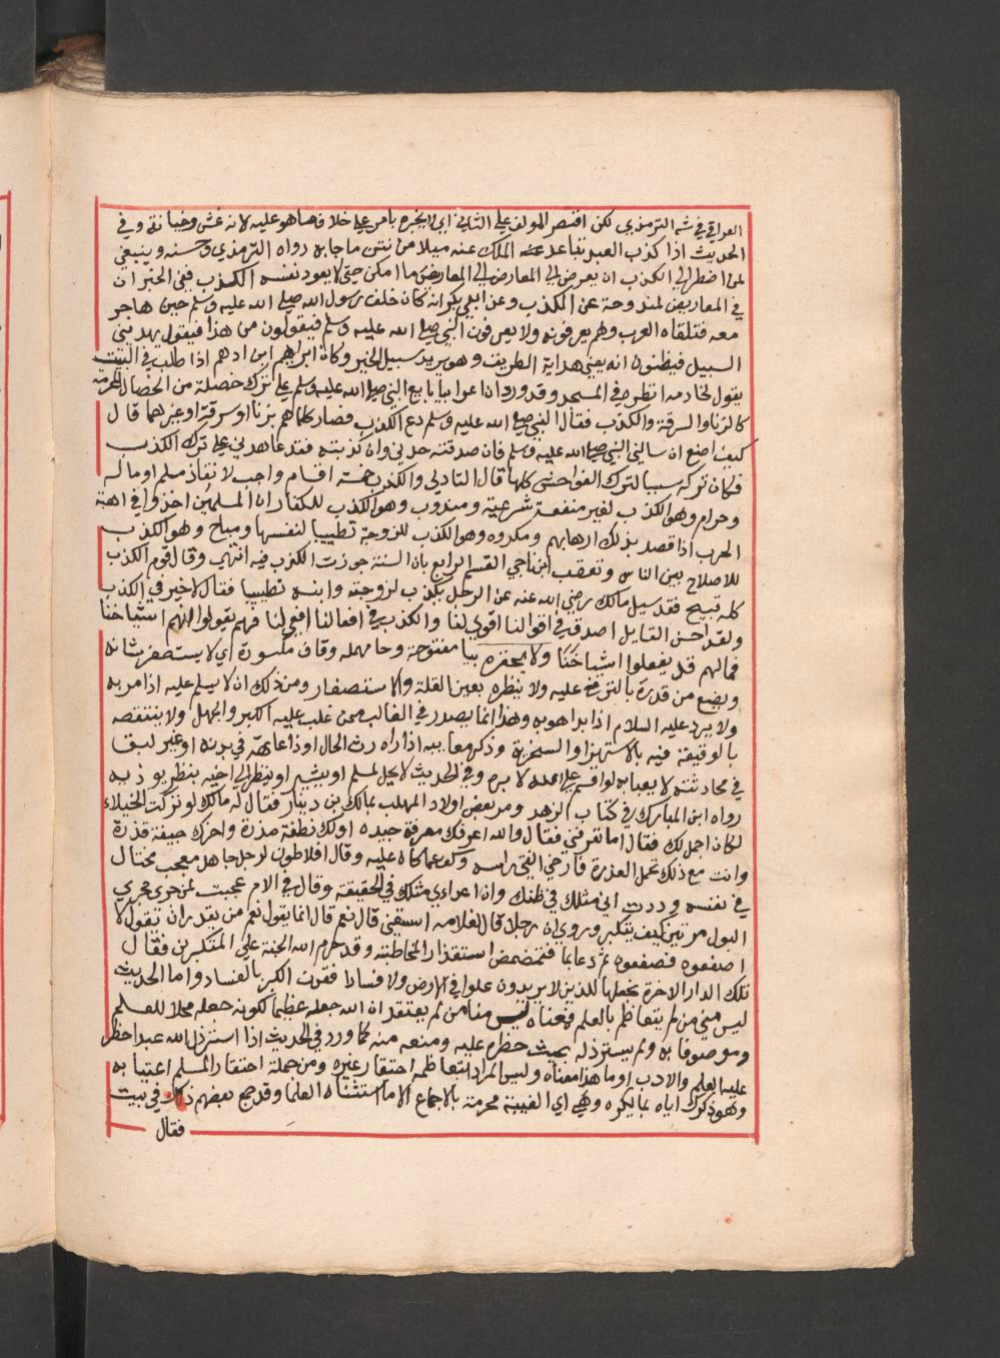 العراقي في شرح الترمذي لكن اقتصر المولف علي الثاني اي لا يخبره بامر علي خلاف ما هو عليه لانه غش وخيانة وفي
الحديث اذا كذب العبد تباعد عنه الملك عنه ميلا من نتن ما جا به رواه الترمذي وحسنه وينبغي
لمن اضطر الي الكذب ان يعرض الي المعارض الي المعارض ما امكن حتي لا يعود نفسه الكذب ففي الخبر ان
في المعاريض لمندوحة عن الكذب وعن ابي بكر انه كان خلف رسول الله صلي الله عليه وسلم حين هاجر
معه فتلقاه العرب وهم يعرفونه ولا يعرفون النبي صلي الله عليه وسلم فيقولون من هذا فيقول يهديني
السبيل فيظنون انه يعني هداية الطريق وهو يريد سبيل الخير وكان ابراهيم ابن ادهم اذا طلب في البيت
يقول لخادمه انظره في المسجد وقد ورد ان اعرابيا بايع النبي صلي الله عليه وسلم علي ترك خصلة من الخصال المحرمة
كالزنا والسرقة والكذب فقال النبي صلي الله عليه وسلم دع الكذب فصار كلما هم بزنا او سرقة او غيرهما قال
كيف اصنع ان سالني النبي صلي الله عليه وسلم فان صدقته حدني وان كذبته فقد عاهدني علي ترك الكذب
فكان تركه سببا لترك الفواحش كلها قال التادلي والكذب خمسة اقسام واجب لانقاذ مسلم او ماله
وحرام وهو الكذب لغير منفعة شرعية ومندوب وهو الكذب للكفار ان المسلمين اخذوا في اهبة
الحرب اذا قصد بذلك ارهابهم ومكروه وهو الكذب للزوجة تطييبا لنفسها ومباح وهو الكذب
للاصلاح بين الناس وتعقب ابن ناجي القسم الرابع بان السنة جوزت الكذب فيه انتهي وقال قوم الكذب
كله قبيح فقد سيل مالك رضي الله عنه عن الرجل يكذب لزوجته وابنه تطييبا فقال لا خير في الكذب
ولقد احسن القايل اصدق في اقوالنا اقوي لنا والكذب في افعالنا افعي لنا فهم يقولوا انهم اشياخنا
فمالهم قل يفعلوا اشياخنا ولا يحقره بيا مفتوحة وحا مهملة وقاف مكسورة اي لا يستصغر شانه
ويضع من قدره بالترفع عليه ولا ينظره بعين القلة والاستصغار ومن ذلك ان لا يسلم عليه اذا مر به
ولا يرد عليه السلام اذا بداه به وهذا انما يصدر في الغالب ممن غلب عليه الكبر والجهل ولا ينتقصه
بالوقيعة فيه بالاستهزا والسخرية وذكر معايبه اذا راه رث الحال او ذا عاهة في بدنه او غير لبق
في محادثته لا يعبا به لو اقسم علي الله لابره وفي الحديث لا يحل لمسلم او يشير او ينظر الي اخيه بنظر يوذيه
رواه ابن المبارك في كتاب الزهد ومر بعض اولاد المهلب بمالك بن دينار فقال له مالك لو تركت الخيلاء
لكان اجمل لك فقال اما تعرفني فقال والله اعرفك معرفة جيده اولك نطفة مذرة واخرك جيفة قذرة
وانت مع ذلك تحمل العذرة فارخي الفتي راسه وكف عما كان عليه وقال افلاطون لرجل جاهل معجب مختال
في نفسه وددت اني مثلك في ظنك وان اعداءي مثلك في الحقيقة وقال في الام عجبت لمن جري مجري
البول مرتين كيف يتكبر وروي ان رجلا قال لغلامه اسقني قال نعم قال انما يقول نعم من يقدر ان تقول لا
اصفعوه فصفعوه ثم دعا بما فتمضمض استقذارا لمخاطبته وقد حرم الله الجنة علي المتكبرين فقال
تلك الدار الاخرة نجعلها للذين لا يريدون علوا في الارض ولا فسادا فقرن الكبر بالفساد واما الحديث
ليس مني من لم يتعاظم بالعلم فمعناه ليس منا من لم يعتقد ان الله جعله عظيما لكونه جعله محلا للعلم
وموصوفا به ولم يسترذله بحيث حظره عليه ومنعه منه كما ورد في الحديث اذا استرذل الله عبدا حظر
عليه العلم والادب او ما هذا معناه وليس المراد التعاظم احتقار غيره ومن جملة احتقار المسلم اغتيابه
وهو ذكرك اياه بما يكره وهي اي الغيبة محرمة بالاجماع الا ما استثناه العلما وقد جمع بعضهم ذلك في بيت
فقال